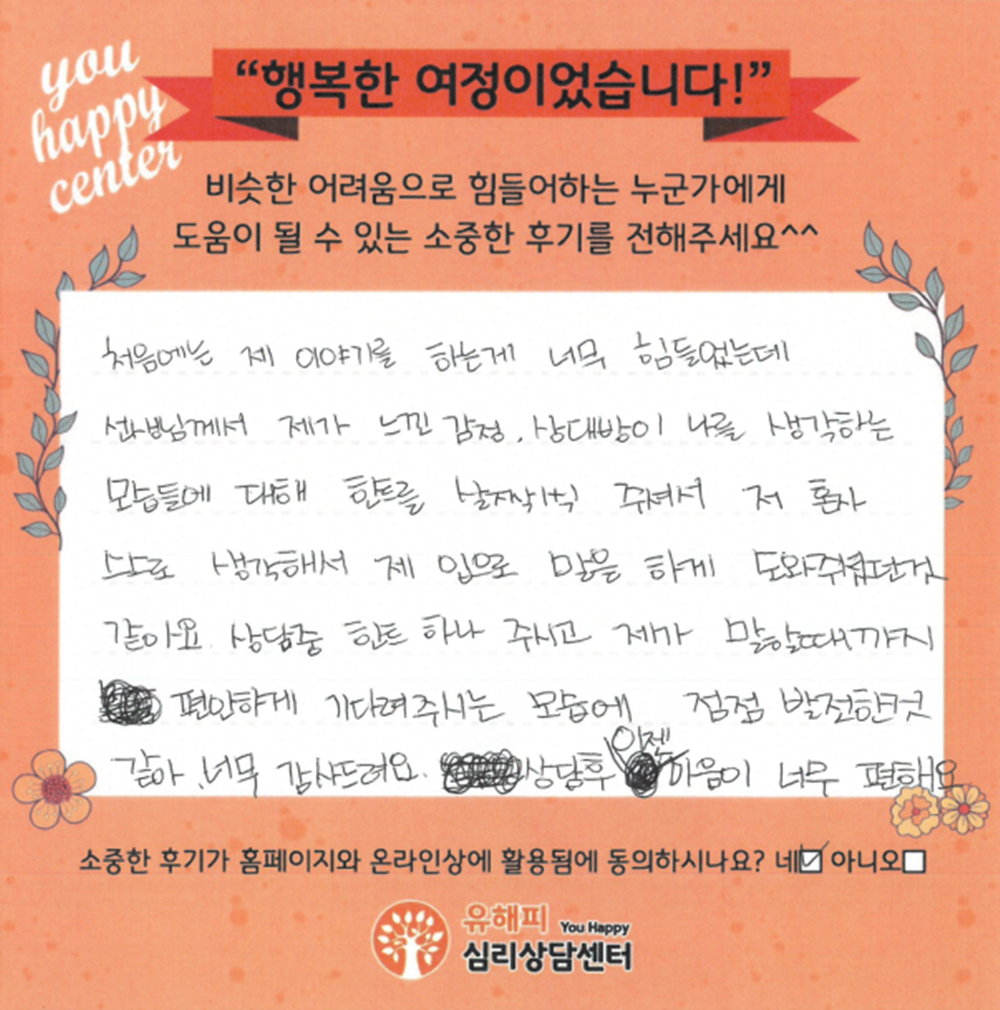 you
happy
center
“행복한 여정이었습니다!”
비슷한 어려움으로 힘들어하는 누군가에게
도움이 될 수 있는 소중한 후기를 전해주세요^^
처음에는 제 이야기를 하는게 너무 힘들었는데
선생님께서 제가 느낀 감정, 상대방이 나를 생각하는
모습들에 대해 힌트를 살짝씩 주셔서 저 혼자
스스로 생각해서 제 입으로 말을 하게 도와주셨던것
같아요. 상담중 힌트 하나 주시고 제가 말할때까지
편안하게 기다려주시는 모습에 점점 발전한것
같아 너무 감사드려요. 상담후 이젠 마음이 너무 편해요
소중한 후기가 홈페이지와 온라인상에 활용됨에 동의하시나요? 네 아니오
유해피 You Happy
심리상담센터